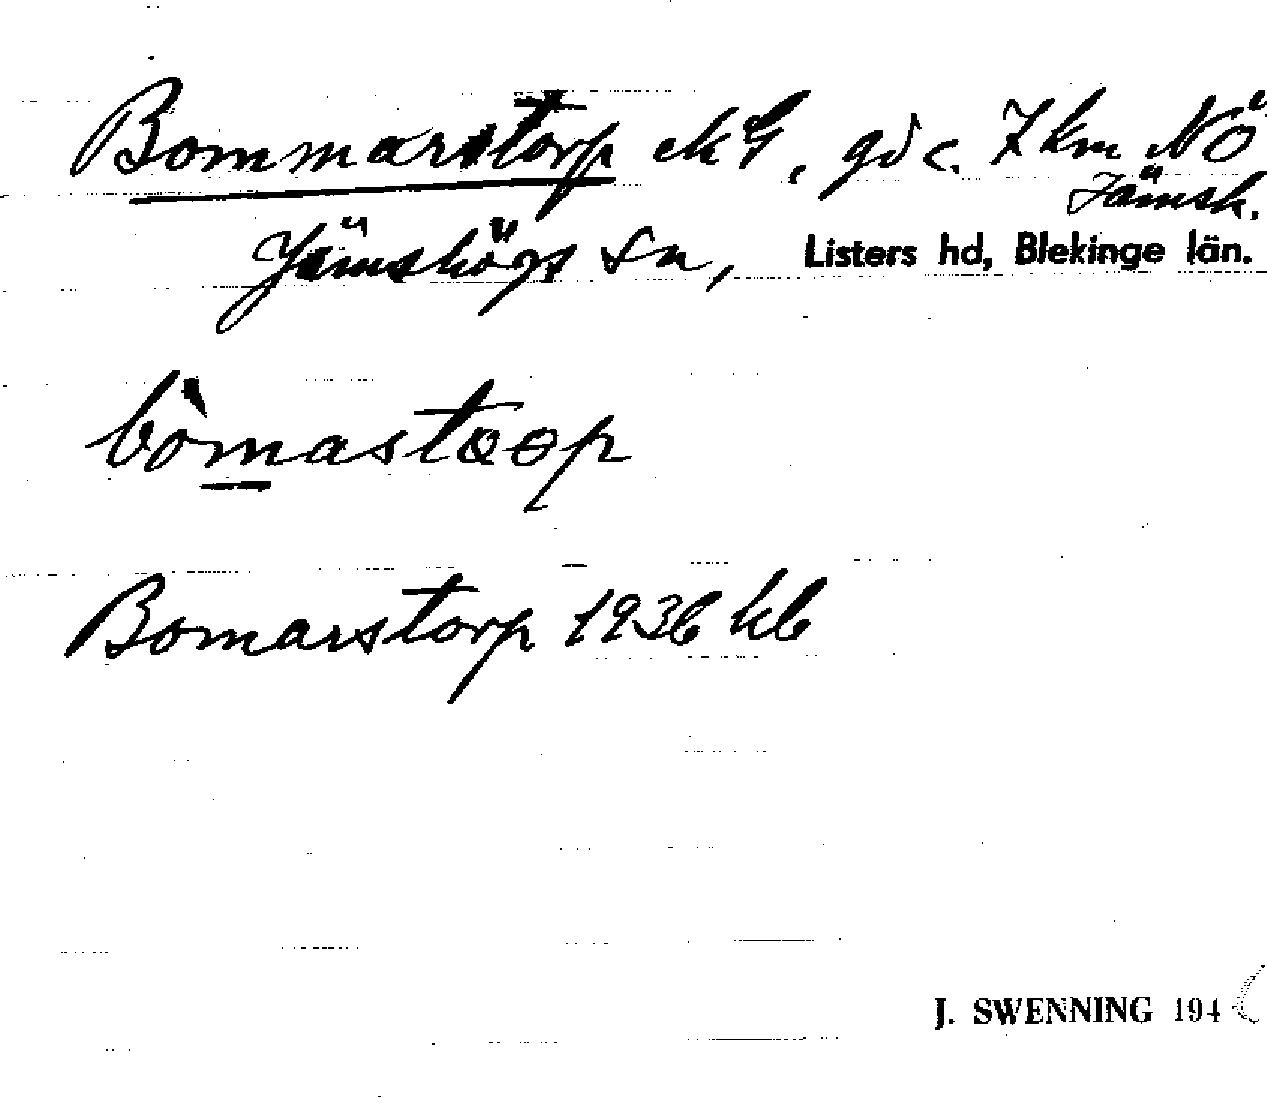 Bommarstorp ekbl, gd c. 7 km NÖ
Jämsh.
Jämshögs sn, Listers hd, Blekinge län.
bòmastɷɵp
Bomarstorp 1936 kb
J. SWENNING 194